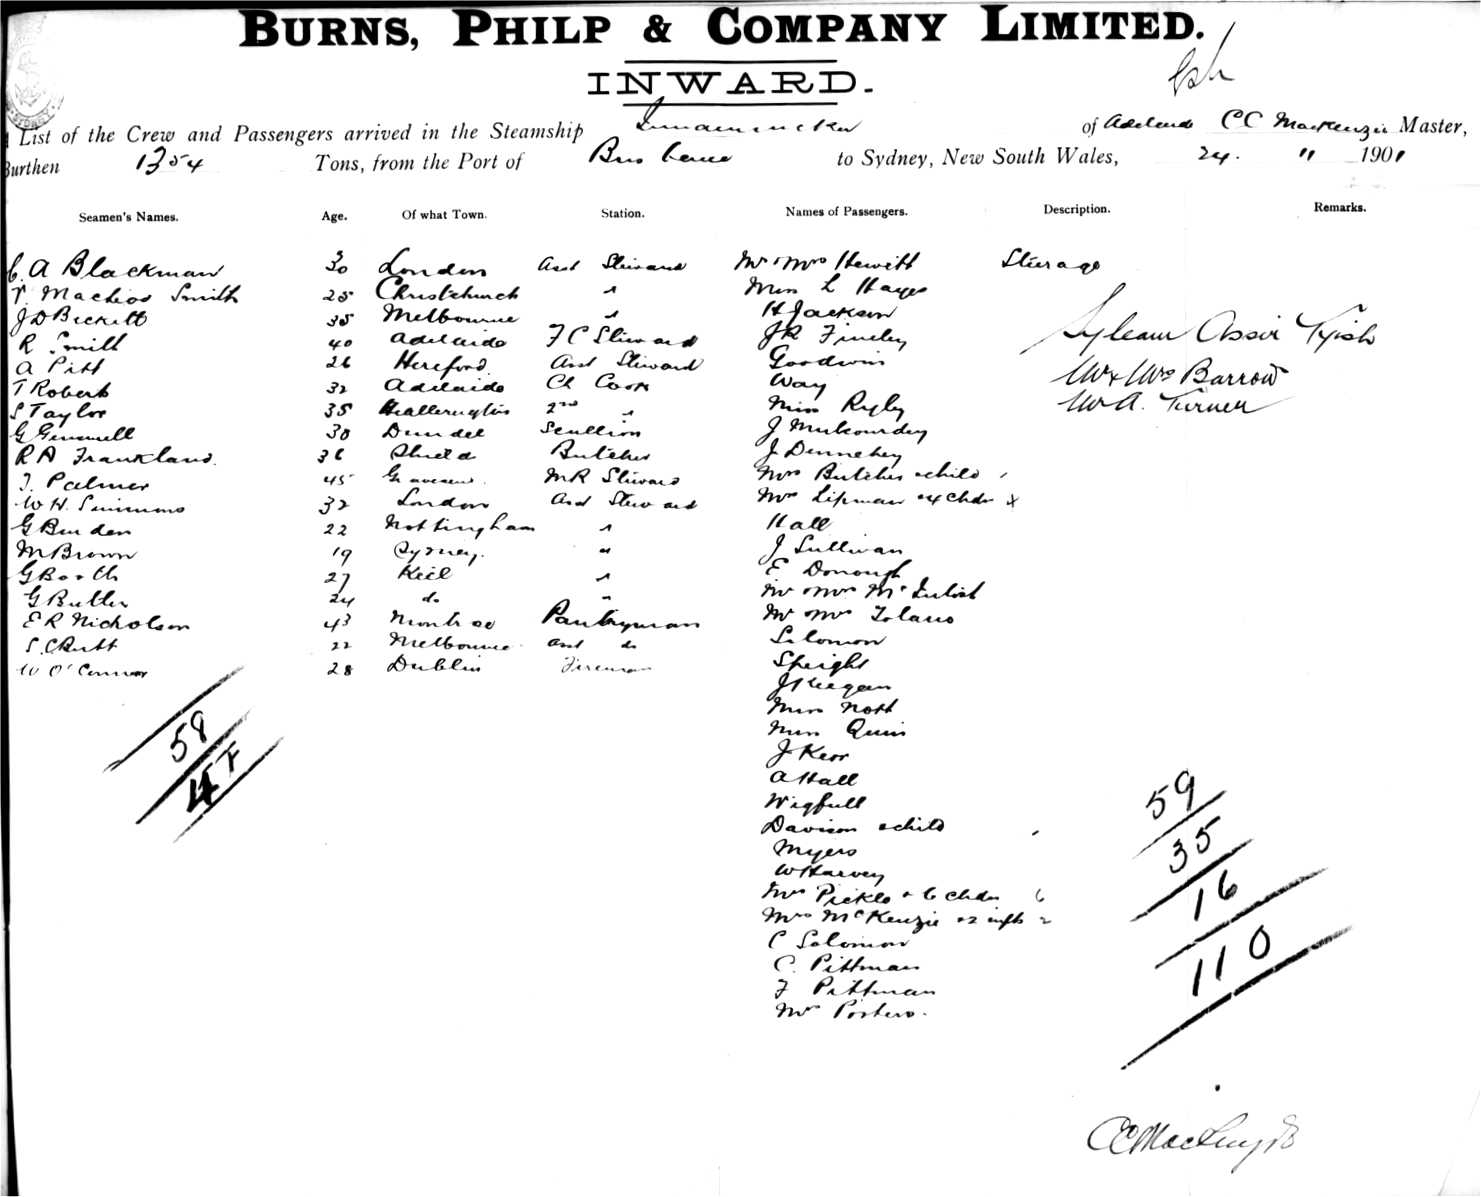 BURNS, PHILP & COMPANY LIMITED.
INWARD.
List of the Crew and Passengers arrived in the Steamship Innamincka of Adelaide CC MacKenzie Master,
Burthen 1354 Tons, from the Port of Brisbane to Sydney, New South Wales, 24. " 1901
Seamen's Names. Age. Of what Town. Station. Names of Passengers. Description. Remarks.
C. A Blackman 30 London Asst Steward Mr & Mrs Hewitt Steerage
Smith 25 Christchurch " Miss L Hayes
J D Bickett 35 Melbourne " H Jackson
R Smith 40 Adelaide F C Steward J R Finley
A Pitt 26 Hereford Asst Steward Goodwin
T Roberts 32 Adelaide Ch Cook Way
S Taylor 35 2nd " Miss Rigby
G Gemmell 30 Dundee Scullion J
R A Frankland. 36 Shields Butcher J Dennehey
J. Palmer 45 Gravesend. M R Steward Mrs Butcher & child
W H. Simmons 32 London Asst Steward Mrs Lipman & 4 chdn 4
G Burden 22 Nottingham " Hall
M Brown 19 Sydney. " J Sullivan
G Booth 27 Kiel " E Donough
G Butler 24 do " Mr & Mrs McIntosh
E R Nicholson 43 Montrose Pantryman Mr & Mrs Tolano
S. C Rutt 22 Melbourne asst do Solomon
W O'Connor 28 Dublin Fireman Speight
J Keegan
Miss Nott
Miss Quin
J Kerr
A Hall
Wigfull
Davison & child
Myers
W Harvey
Mrs Pickls & 6 chdn 6
Mrs McKenzie & 2 infts 2
C Solomon
C. Pittman
F Pittman
Mr Porters.
Assir
Mr & Mrs Barrow
Mr A. Turner
58
4 F
59
35
16
110
CC MacKenzie